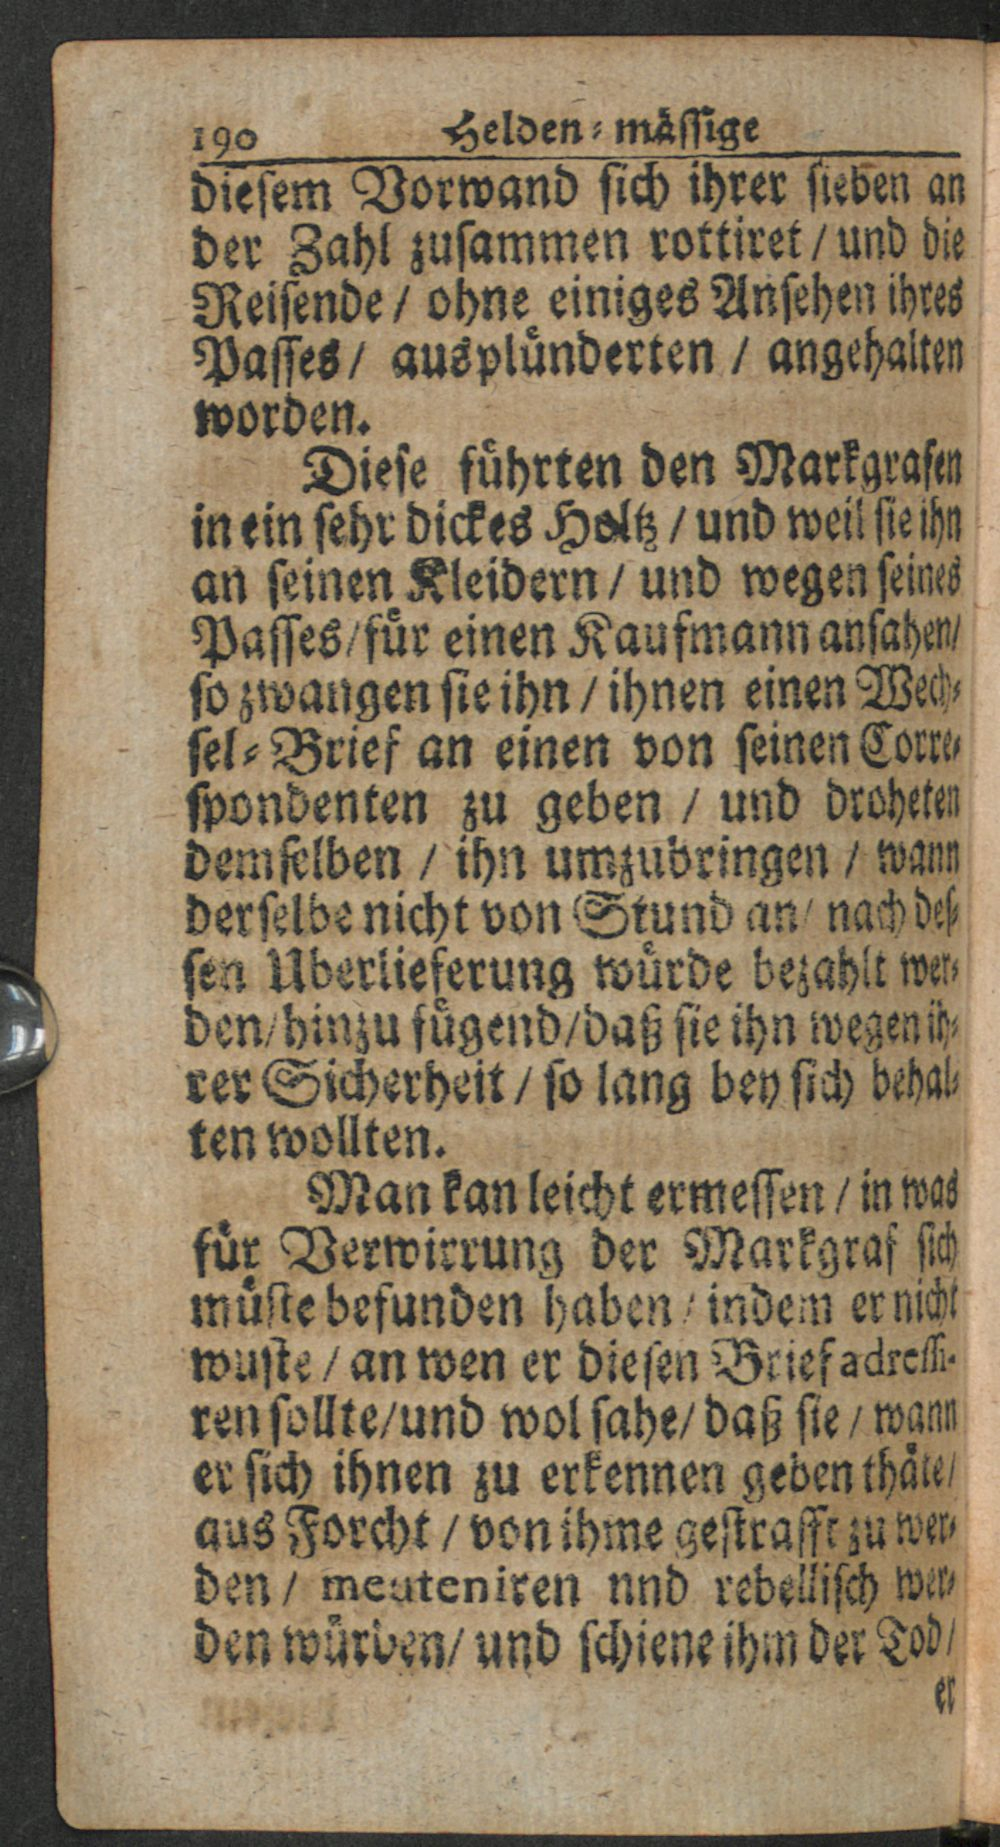 190 Helden-mässige
diesem Vorwand sich ihrer sieben an
der Zahl zusammen rottiret / und die
Reisende / ohne einiges Ansehen ihres
Passes / ausplünderten / angehalten
worden.
Diese führten den Markgrafen
in ein sehr dickes Holtz / und weil sie ihn
an seinen Kleidern / und wegen seines
Passes / für einen Kaufmann ansahen /
so zwangen sie ihn / ihnen einen Wech-
sel-Brief an einen von seinen Corre-
spondenten zu geben / und droheten
demselben / ihn umzubringen / wann
derselbe nicht von Stund an / nach des-
sen Uberlieferung würde bezahlt wer-
den / hinzu fügend / daß sie ihn wegen ih-
rer Sicherheit / so lang bey sich behal-
ten wollten.
Man kan leicht ermessen / in was
für Verwirrung der Markgraf sich
müste befunden haben / indem er nicht
wuste / an wen er diesen Brief adressi-
ren sollte / und wol sahe / daß sie / wann
er sich ihnen zu erkennen geben thäte /
aus Forcht / von ihme gestrafft zu wer-
den / meuteniren nnd rebellisch wer-
den würden / und schiene ihm der Tod /
er